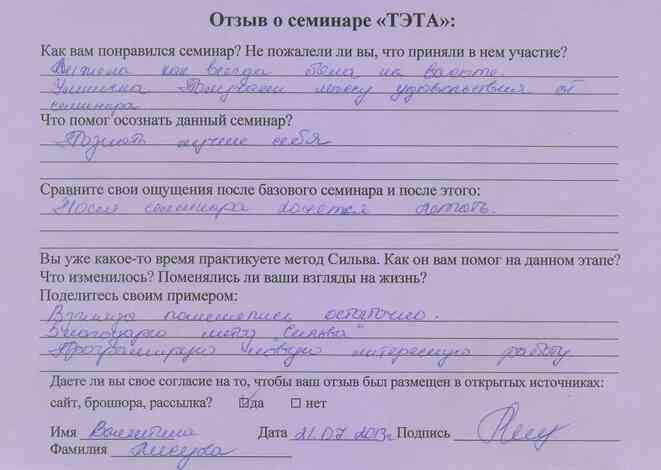 Отзыв о семинаре «ТЭТА»:
Как вам понравился семинар? Не пожалели ли вы, что приняли в нем участие?
как всегда была на высоте.
Умничка Получаем массу удовольствия от
семинара
Что помог осознать данный семинар?
Познать лучше себя
Сравните свои ощущения после базового семинара и после этого:
После семинара хочется летать.
Вы уже какое-то время практикуете метод Сильва. Как он вам помог на данном этапе?
Что изменилось? Поменялись ли ваши взгляды на жизнь?
Поделитесь своим примером:
Взгляды поменялись остаточно.
Благодарю метод „Сильва"
Программирую новую интересную работу
Даете ли вы свое согласие на то, чтобы ваш отзыв был размещен в открытых источниках:
сайт, брошюра, рассылка? ☑да ☐ нет
Имя Валентина Дата 21.07 2013г Подпись
Фамилия